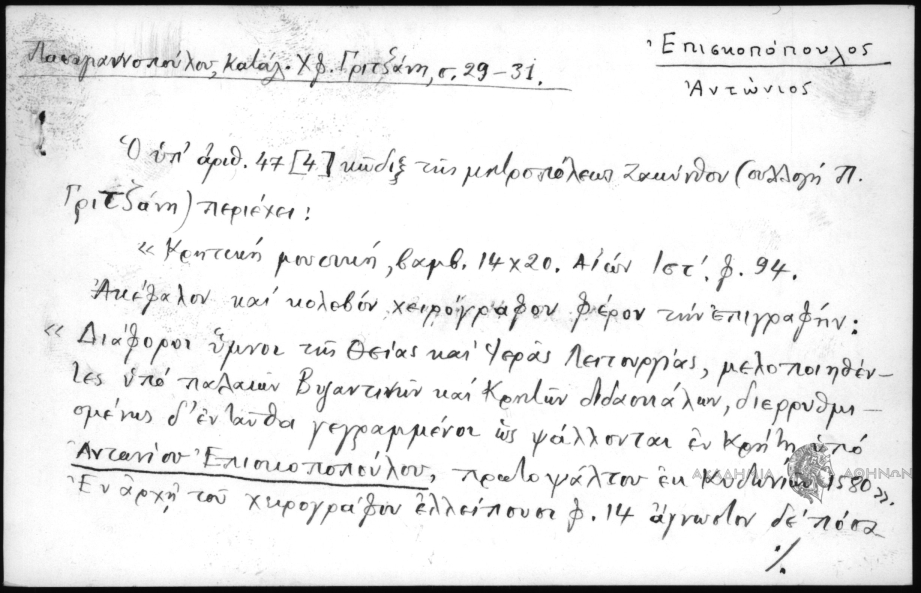 Παπαγιαννοπούλου, Κατάλ. Χφ. Γριτζάνη, σ. 29-31.
Ἐπισκοπόπουλος
Ἀντώνιος
Ὁ ὑπ' ἀριθ. 47 [4] κῶδιξ τῆς μητροπόλεως Ζακύνθου (συλλογή Π.
Γριτζάνη) περιέχει:
« Κρητική μουσική, βαμβ. 14 x 20. Αἰών Ιστ'. φ. 94.
Ἀκέφαλον καί κολοβόν χειρόγραφον φέρον τήν ἐπιγραφήν:
« Διάφοροι ὕμνοι τῆς Θείας καί Ἱερᾶς Λειτουργίας, μελοποιηθέν-
τες ὑπό παλαιῶν Βυζαντινῶν καί Κρητῶν διδασκάλων, διερρυθμι-
σμένως δ' ἐνταῦθα γεγραμμένοι ὡς ψάλλονται ἐν Κρήτῃ ὑπό
Ἀντωνίου Ἐπισκοποπούλου, πρωτοψάλτου ἐκ Κυδωνιῶν 1580».
Ἐν ἀρχῇ τοῦ χειρογράφου ἐλλείπουσι φ. 14 ἄγνωστον δέ πόσα
ΑΚΑΔΗΜΙΑ ΑΘΗΝΩΝ
·/.